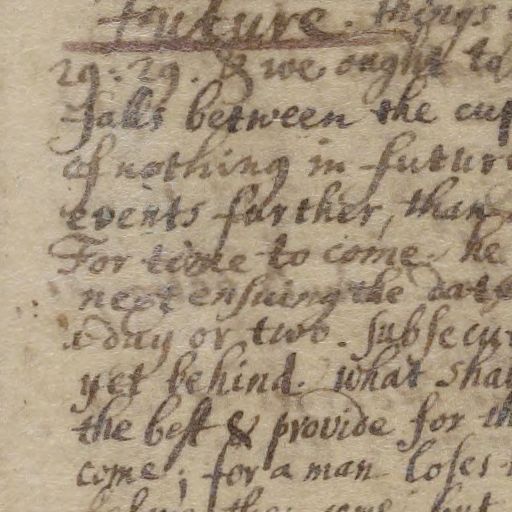 future. things
29: 29. & we ought to
Falls between the cup
of nothing in futur
events further, than
For time to come. he
next ensuing the date
a day or two. subsecu
yet behind. what shal
the best & provide for th
come; for a man loses